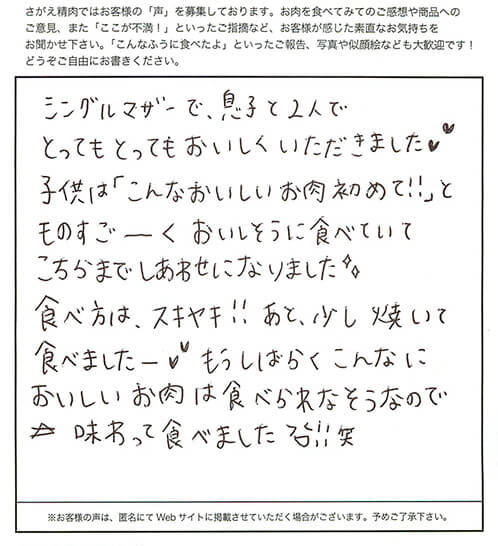 さがえ精肉ではお客様の「声」を募集しております。お肉を食べてみてのご感想や商品への
ご意見、また「ここが不満！」といったご指摘など、お客様が感じた素直なお気持ちを
お聞かせ下さい。「こんなふうに食べたよ」といったご報告、写真や似顔絵なども大歓迎です！
どうぞご自由にお書きください。
シングルマザーで、息子と2人で
とってもとってもおいしくいただきました♥♥
子供は「こんなおいしいお肉初めて!!」と
ものすごーくおいしそうに食べていて
こちらまでしあわせになりました
食べ方は、スキヤキ!! あと、少し焼いて
食べましたー♥♥ もうしばらくこんなに
おいしいお肉は食べられなそうなので
☆味わって食べました!!笑
※お客様の声は、匿名にてWebサイトに掲載させていただく場合がございます。予めご了承下さい。